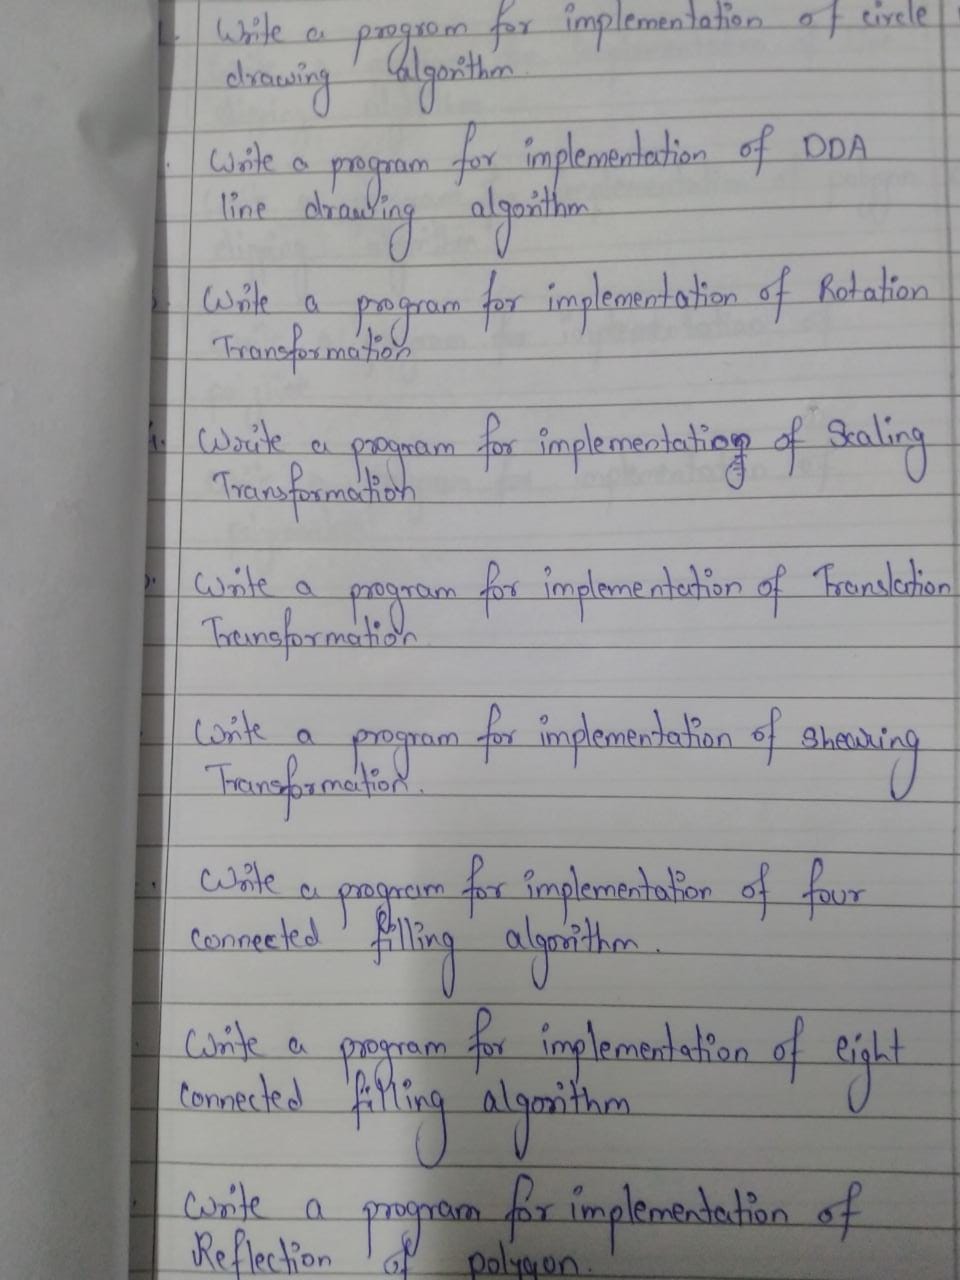 1. Write a program for implementation of circle
drawing algorithm
. Write a program for implementation of DDA
line drawing algorithm
Write a program for implementation of Rotation
Transformation
4. Write a program for implementation of Scaling
Transformation
Write a program for implementation of Translation
Transformation
Write a program for implementation of Shearing
Transformation.
. Write a program for implementation of four
connected filling algorithm.
Write a program for implementation of eight
connected filling algorithm
Write a program for implementation of
Reflection of polygon.